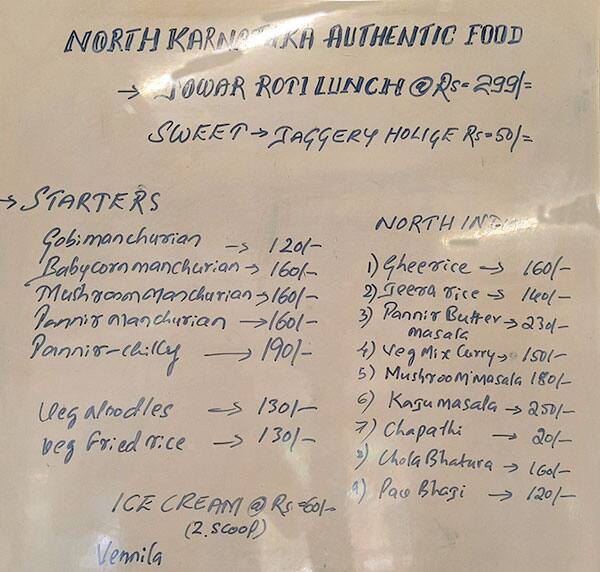 NORTH KARNATAKA AUTHENTIC FOOD
→ JOWAR ROTI LUNCH @ Rs = 299/=
SWEET → JAGGERY HOLIGE Rs = 50/=
→ STARTERS
Gobi manchurian → 120/-
Babycorn manchurian → 160/-
Mushroom manchurian → 160/-
Pannir manchurian → 160/-
Pannir-chilly → 190/-
Veg Noodles → 130/-
Veg Fried rice → 130/-
ICE CREAM @ Rs = 60/-
(2. SCOOP)
Vennila
NORTH INDIAN
1) Ghee rice → 160/-
2) Jeera rice → 140/-
3) Pannir Butter → 230/-
masala
4) Veg Mix Curry → 150/-
5) Mushroom masala 180/-
6) Kaju masala → 250/-
7) Chapathi → 20/-
8) Chola Bhatura → 160/-
9) Pav Bhagi → 120/-